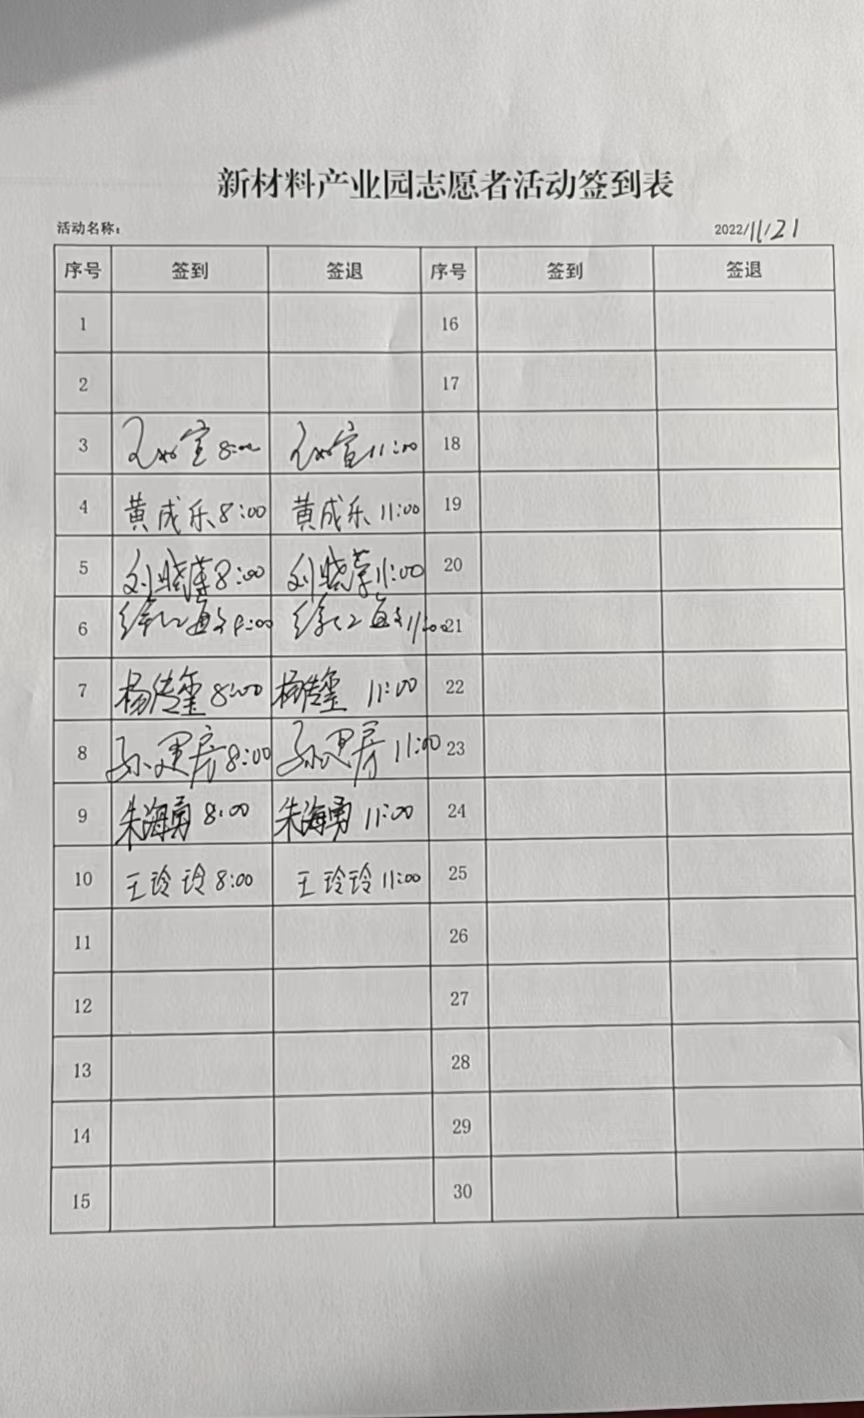 新材料产业园志愿者活动签到表
活动名称： 2022/11/21
序号 签到 签退 序号 签到 签退
1 16
2 17
3 8:00 11:00 18
4 黄成乐 8:00 黄成乐 11:00 19
5 刘晓 8:00 刘晓 11:00 20
6 徐 8:00 徐 11:00 21
7 杨 8:00 杨 11:00 22
8 孙思房 8:00 孙思房 11:00 23
9 朱海勇 8:00 朱海勇 11:00 24
10 王玲玲 8:00 王玲玲 11:00 25
11 26
12 27
13 28
14 29
15 30